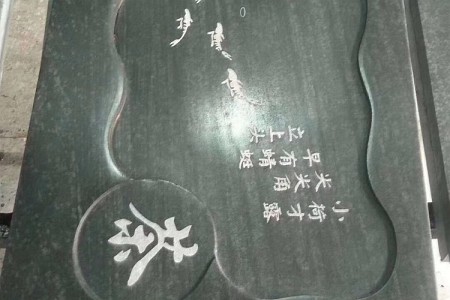 小荷才露
尖尖角
早有蜻蜓
立上头
茶